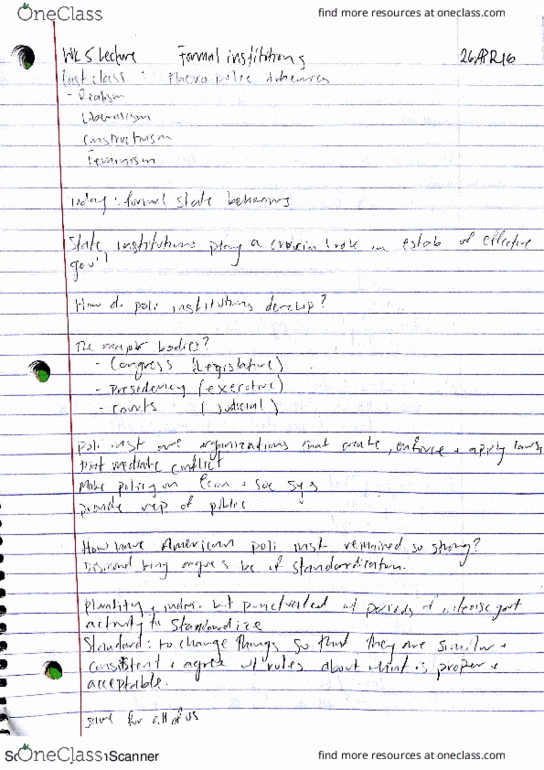 OneClass find more resources at oneclass.com
WK 5 Lecture Formal institutions 26APR16
Last class : Macro
- Realism
Liberalism
Constructivism
Feminism
Today : formal state behaviors
State institutions play a in estab of effective
gov't
How do poli institutions develop?
The major bodies?
- Congress (legislative)
- Presidency (executive)
- Courts (judicial)
poli inst are organizations that create, enforce + apply laws
that mediate conflict
Make policy on Econ + Soc sys
provide rep of public
How have American poli inst remained so strong?
Desmond King argues bc of standardization.
Plurality + but punctuated w/ periods of intense govt
activity to standardize
Standard : to change things so that they are similar +
consistent + agree w/ rules about what is proper +
acceptable.
same for all of us
OneClass Scanner find more resources at oneclass.com